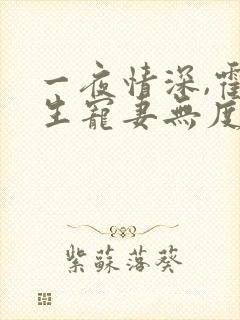 一夜情深,霍
生寵妻無度
紫蘇落葵